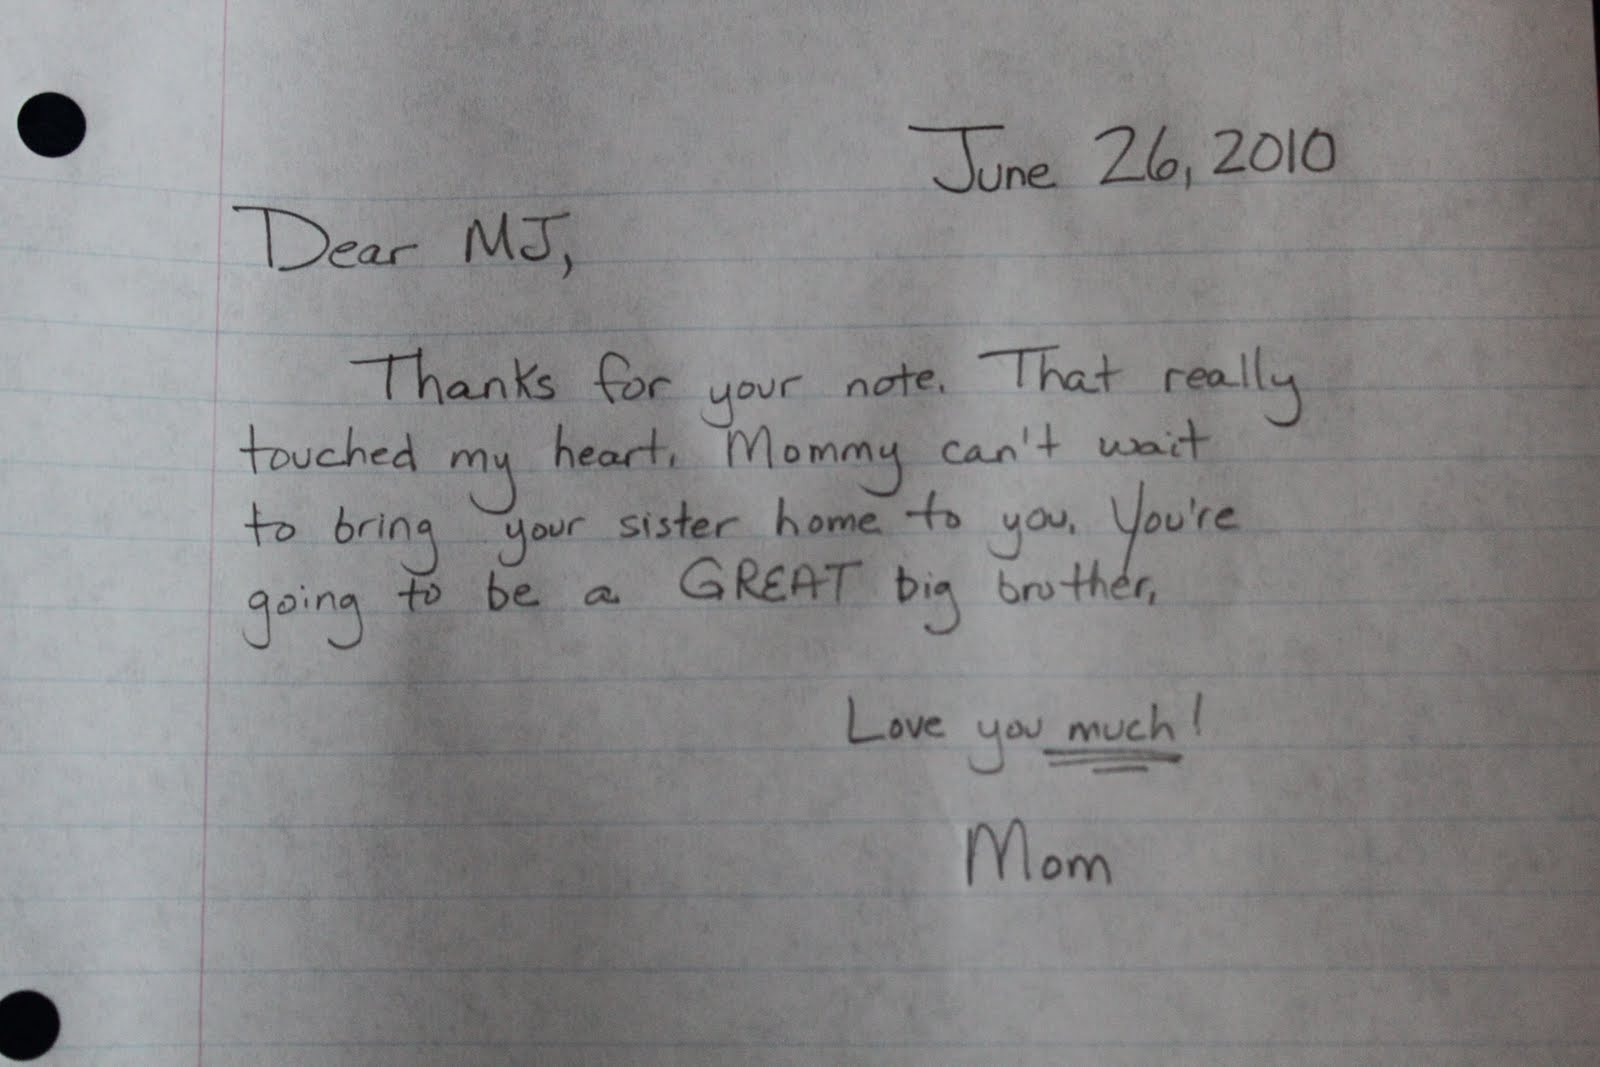 June 26, 2010
Dear MJ,
Thanks for your note. That really
touched my heart. Mommy can't wait
to bring your sister home to you. You're
going to be a GREAT big brother.
Love you much!
Mom